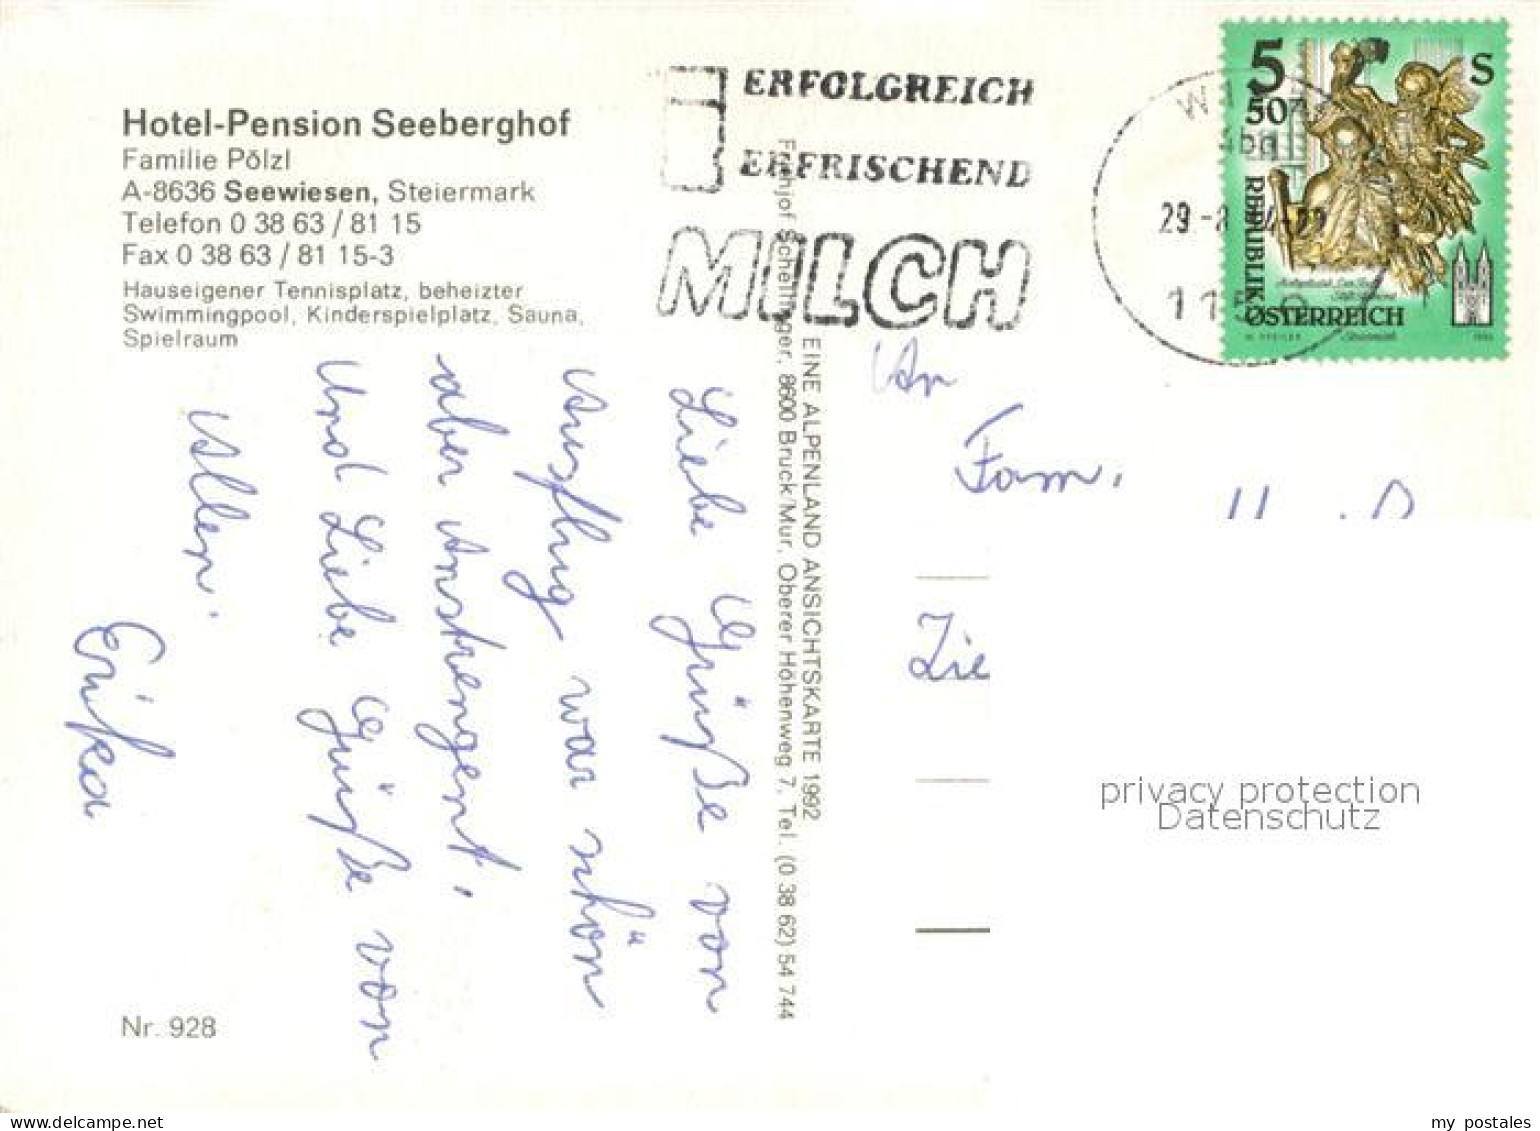 Hotel-Pension Seeberghof
Familie Pölzl
A-8636 Seewiesen, Steiermark
Telefon 0 38 63 / 81 15
Fax 0 38 63 / 81 15-3
Hauseigener Tennisplatz, beheizter
Swimmingpool, Kinderspielplatz, Sauna,
Spielraum
ERFOLGREICH
ERFRISCHEND
MILCH
29-8
5 S
50
REPUBLIK
ÖSTERREICH
Liebe Grüße von
Ausflug war schön
aber Anstrengent,
Und Liebe Grüße von
Allen.
Erika
EINE ALPENLAND ANSICHTSKARTE 1992
8600 Bruck/Mur, Oberer Höhenweg 7, Tel. (0 38 62) 54 744
An
Fam.
Zie
privacy protection
Datenschutz
Nr. 928
my postales